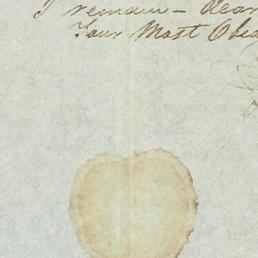 I remain – dear
Your Most Obed